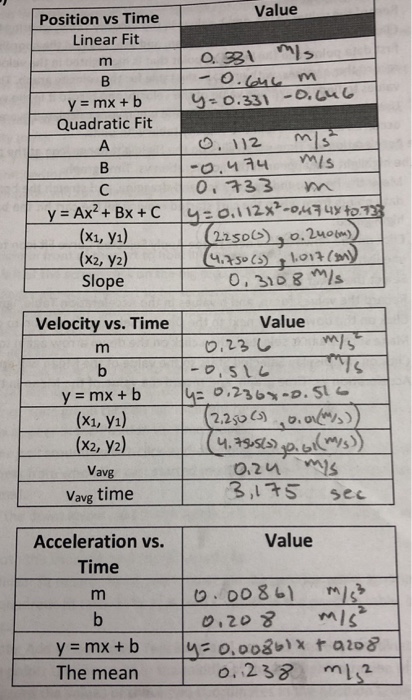 Position vs Time Value
Linear Fit
m 0.331 m/s
B -0.646 m
y = mx + b y=0.331 -0.646
Quadratic Fit
A 0.112 m/s²
B -0.474 m/s
C 0.733 m
y = Ax² + Bx + C y=0.112x²-0.474x+0.733
(x₁, y₁) (2.250(s), 0.240(m))
(x₂, y₂) (4.750(s), 1.017(m))
Slope 0.3108 m/s
Velocity vs. Time Value
m 0.236 m/s²
b -0.516 m/s
y = mx + b y= 0.236x-0.516
(x₁, y₁) (2.250(s), 0.01(m/s))
(x₂, y₂) (s), 0.61(m/s))
Vavg 0.24 m/s
Vavg time 3.175 sec
Acceleration vs. Time Value
m 0.00861 m/s³
b 0.208 m/s²
y = mx + b y= 0.00861x + 0.208
The mean 0.238 m/s²